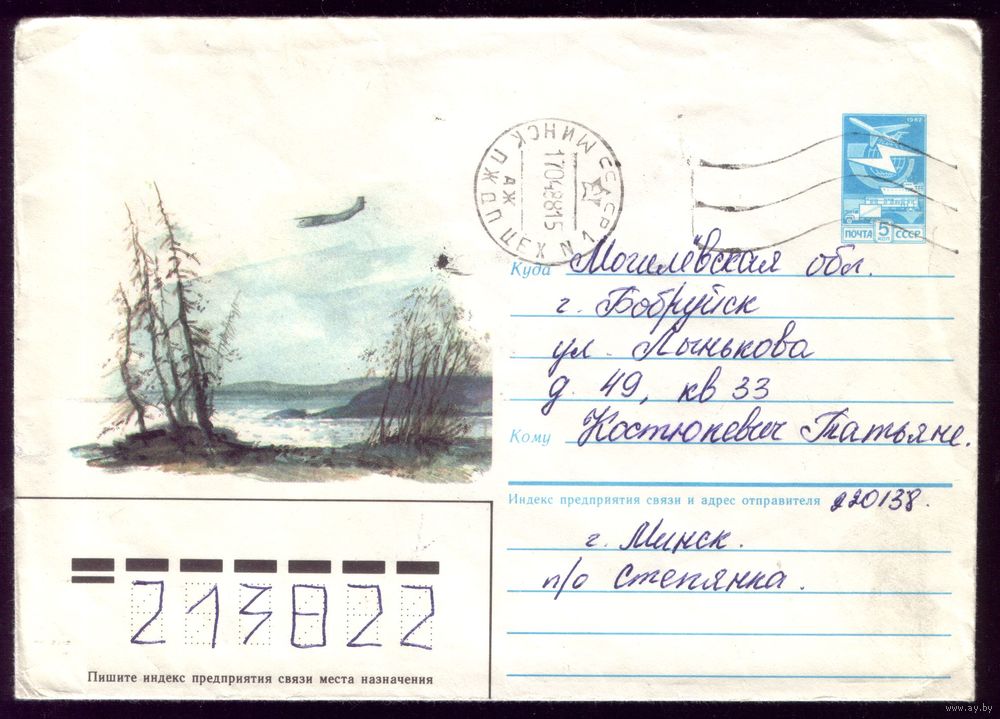 1982
ПОЧТА 5 КОП СССР
СССР МИНСК ПЖДП ЦЕХ N1
17048815
АЖ
Куда Могилёвская обл.
г. Бобруйск
ул. Лынькова
д. 49, кв 33
Кому Костюкевич Татьяне.
Индекс предприятия связи и адрес отправителя 220138.
г. Минск.
п/о Степянка.
213822
Пишите индекс предприятия связи места назначения
www.ay.by